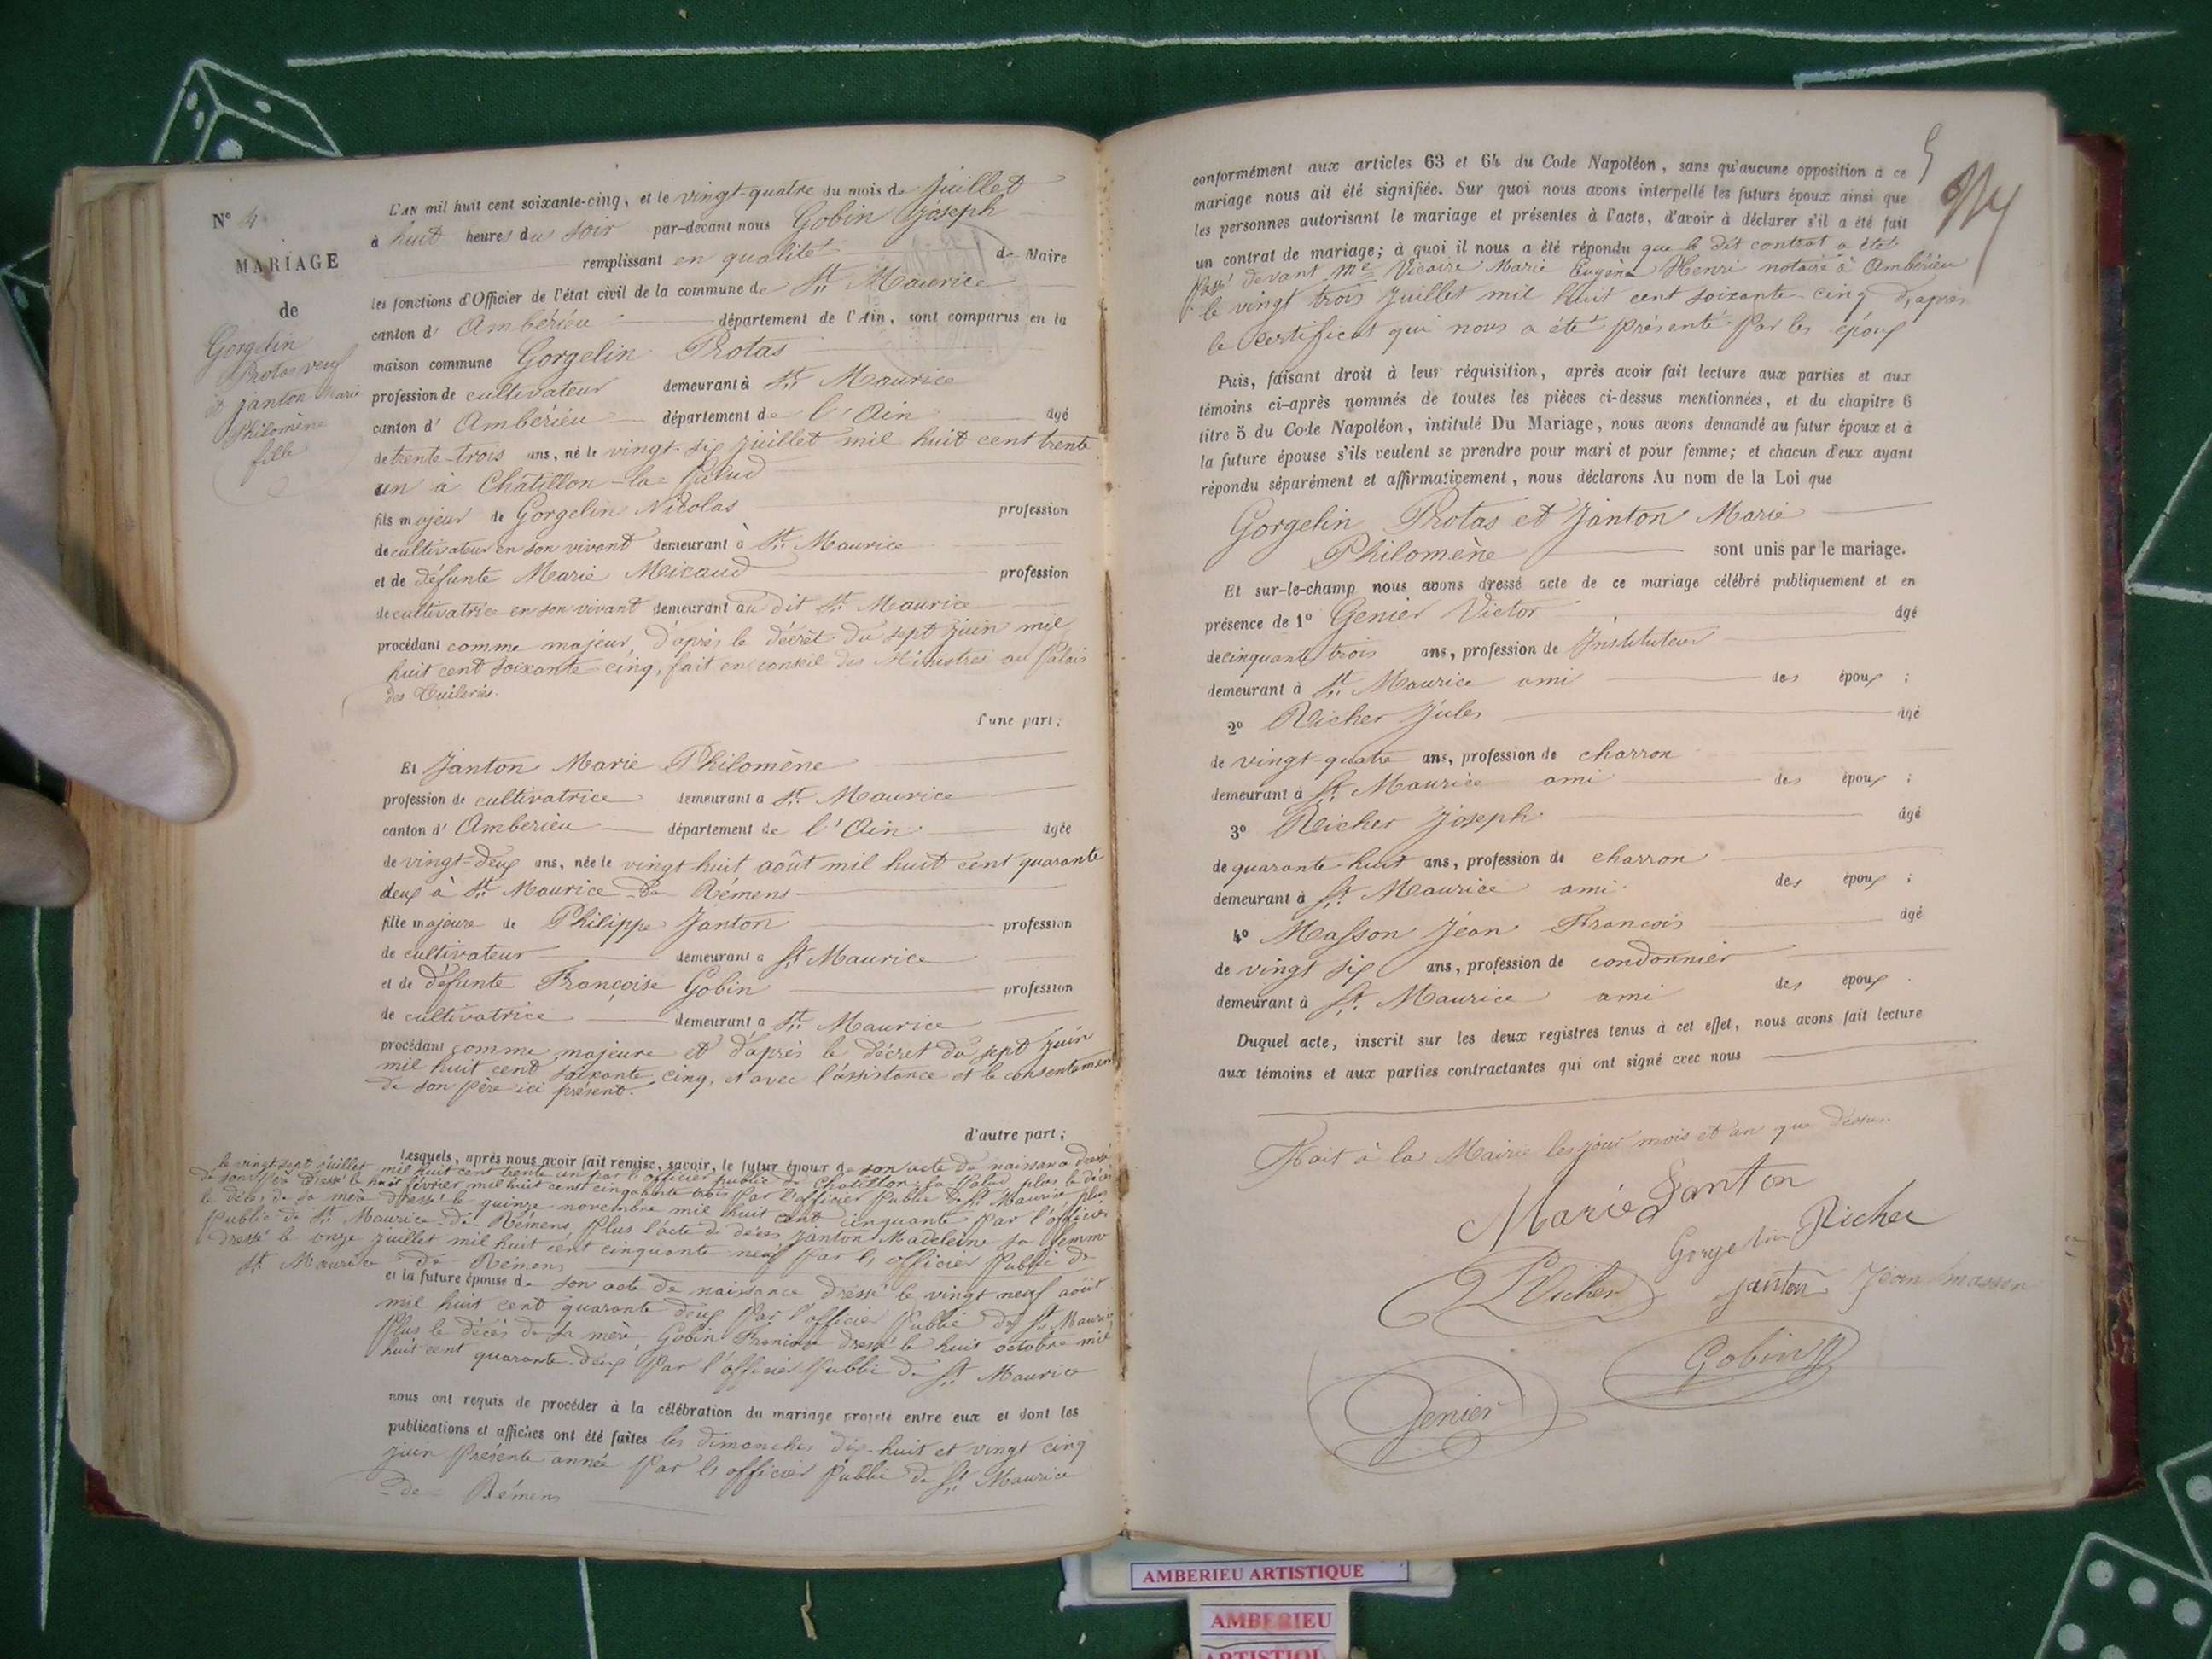 N° 4
MARIAGE
de
Gorgelin
Protas veuf
et Janton Marie
Philomène
fille
L'AN mil huit cent soixante-cinq, et le vingt-quatre du mois de Juillet
à huit heures du soir par-devant nous Gobin Joseph
remplissant en qualité de Maire
les fonctions d'Officier de l'état civil de la commune de St Maurice
canton d' Ambérieu département de l'Ain, sont comparus en la
maison commune Gorgelin Protas
profession de cultivateur demeurant à St Maurice
canton d' Ambérieu département de l'Ain âgé
de trente-trois ans, né le vingt-six juillet mil huit cent trente
un à Châtillon-la-Palud
fils majeur de Gorgelin Nicolas profession
de cultivateur en son vivant demeurant à St Maurice
et de défunte Marie Micaud profession
de cultivatrice en son vivant demeurant au dit St Maurice
procédant comme majeur d'après le décrèt du sept juin mil
huit cent soixante cinq, fait en conseil des Ministres au Palais
des Tuileries.
d'une part;
Et Janton Marie Philomène
profession de cultivatrice demeurant à St Maurice
canton d' Amberieu département de l'Ain âgée
de vingt-deux ans, née le vingt huit août mil huit cent quarante
deux à St Maurice de Rémens
fille majeure de Philippe Janton profession
de cultivateur demeurant à St Maurice
et de défunte Françoise Gobin profession
de cultivatrice demeurant à St Maurice
procédant comme majeure et d'après le décret du sept juin
mil huit cent soixante cinq, et avec l'assistance et le consentement
de son père ici présent.
d'autre part;
Lesquels, après nous avoir fait remise, savoir, le futur époux de son acte de naissance dressé
le vingt sept juillet mil huit cent trente un par l'officier public de Chatillon-la-Palud, plus le décès
de son père dressé le huit février mil huit cent cinquante trois par l'officier Public de St Maurice, plus
le décès de sa mère dressé le quinze novembre mil huit cent cinquante par l'officier
Public de St Maurice-de-Rémens, plus l'acte de décès Janton Madeleine sa femme
dressé le onze juillet mil huit cent cinquante neuf par l'officier Public de
St Maurice de Rémens
et la future épouse de son acte de naissance dressé le vingt neuf août
mil huit cent quarante deux par l'officier Public de St Maurice
Plus le décès de sa mère Gobin dressé le huit octobre mil
huit cent quarante-deux par l'officier Public de St Maurice
nous ont requis de procéder à la célébration du mariage projeté entre eux et dont les
publications et affiches ont été faites les dimanches dix-huit et vingt cinq
juin présente année par l'officier Public de St Maurice
de Rémens
5
conformément aux articles 63 et 64 du Code Napoléon, sans qu'aucune opposition à ce
mariage nous ait été signifiée. Sur quoi nous avons interpellé les futurs époux ainsi que
les personnes autorisant le mariage et présentes à l'acte, d'avoir à déclarer s'il a été fait
un contrat de mariage; à quoi il nous a été répondu que le dit contrat a été
passé devant Me Vicaire Marie Eugène Henri notaire à Ambérieu
le vingt trois Juillet mil huit cent soixante-cinq d'après
le certificat qui nous a été présenté par les époux
Puis, faisant droit à leur réquisition, après avoir fait lecture aux parties et aux
témoins ci-après nommés de toutes les pièces ci-dessus mentionnées, et du chapitre 6
titre 5 du Code Napoléon, intitulé Du Mariage, nous avons demandé au futur époux et à
la future épouse s'ils veulent se prendre pour mari et pour femme; et chacun d'eux ayant
répondu séparément et affirmativement, nous déclarons Au nom de la Loi que
Gorgelin Protas et Janton Marie
Philomène sont unis par le mariage.
Et sur-le-champ nous avons dressé acte de ce mariage célébré publiquement et en
présence de 1° Genier Victor âgé
de cinquante trois ans, profession de Instituteur
demeurant à St Maurice ami des époux ;
2° Richer Jules âgé
de vingt-quatre ans, profession de charron
demeurant à St Maurice ami des époux ;
3° Richer Joseph âgé
de quarante-huit ans, profession de charron
demeurant à St Maurice ami des époux ;
4° Masson Jean François âgé
de vingt six ans, profession de condonnier
demeurant à St Maurice ami des époux .
Duquel acte, inscrit sur les deux registres tenus à cet effet, nous avons fait lecture
aux témoins et aux parties contractantes qui ont signé avec nous
Fait à la Mairie les jour mois et an que dessus.
Marie Janton
Gorgelin Richer
Richer Janton Jean masson
Gobin
Genier
AMBERIEU ARTISTIQUE
AMBERIEU
ARTISTIQUE